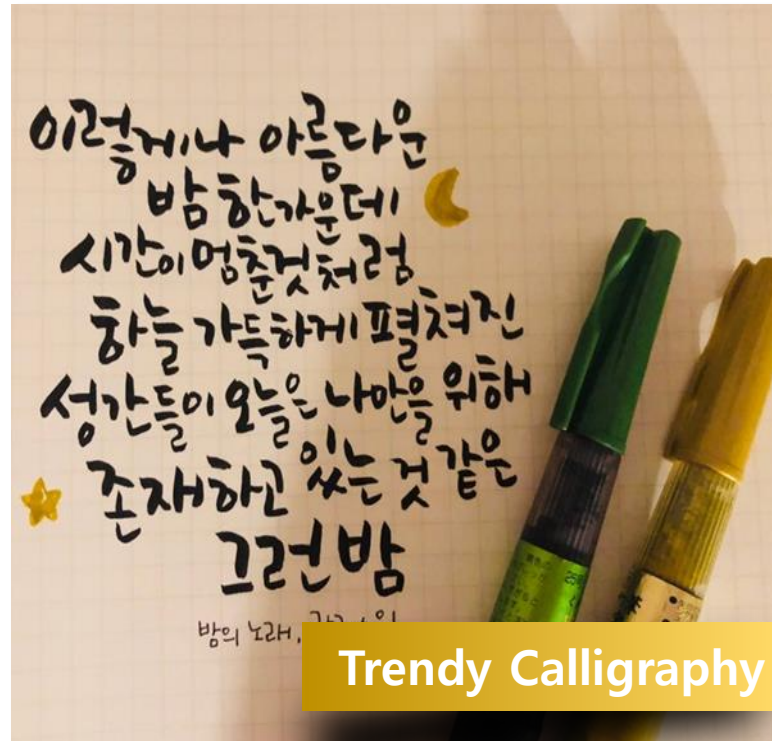 이렇게나 아름다운
밤 한가운데
시간이 멈춘것처럼
하늘 가득하게 펼쳐진
성간들이 오늘은 나만을 위해
존재하고 있는 것 같은
그런 밤
밤의 노래,
Trendy Calligraphy